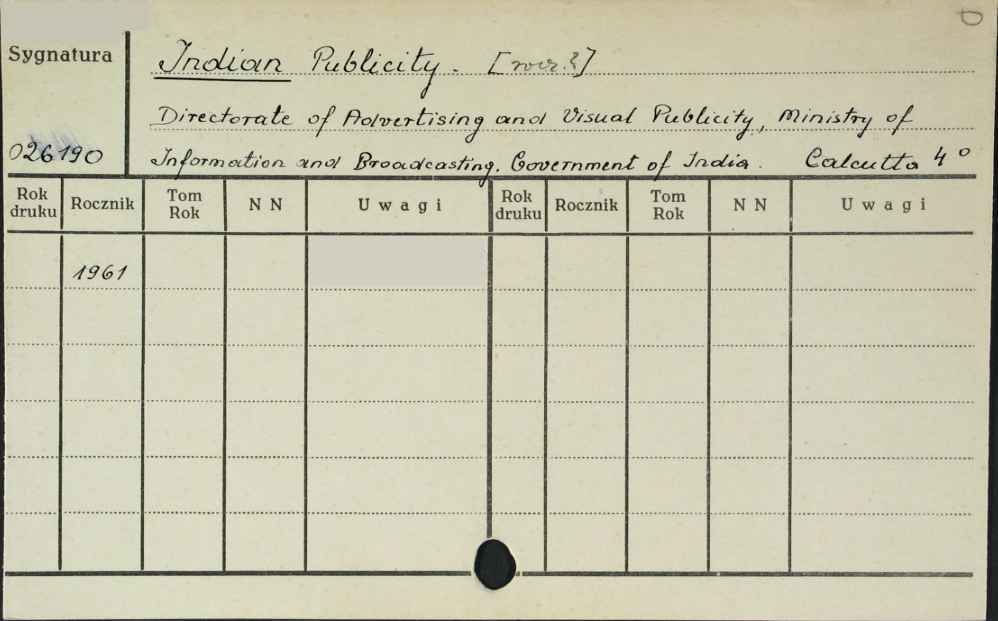 Sygnatura
Indian Publicity.
Directorate of Advertising and Visual Publicity, Ministry of
026190
Information and Broadcasting. Government of India. Calcutta 4°
Rok druku Rocznik Tom Rok N N Uwagi Rok druku Rocznik Tom Rok N N Uwagi
1961